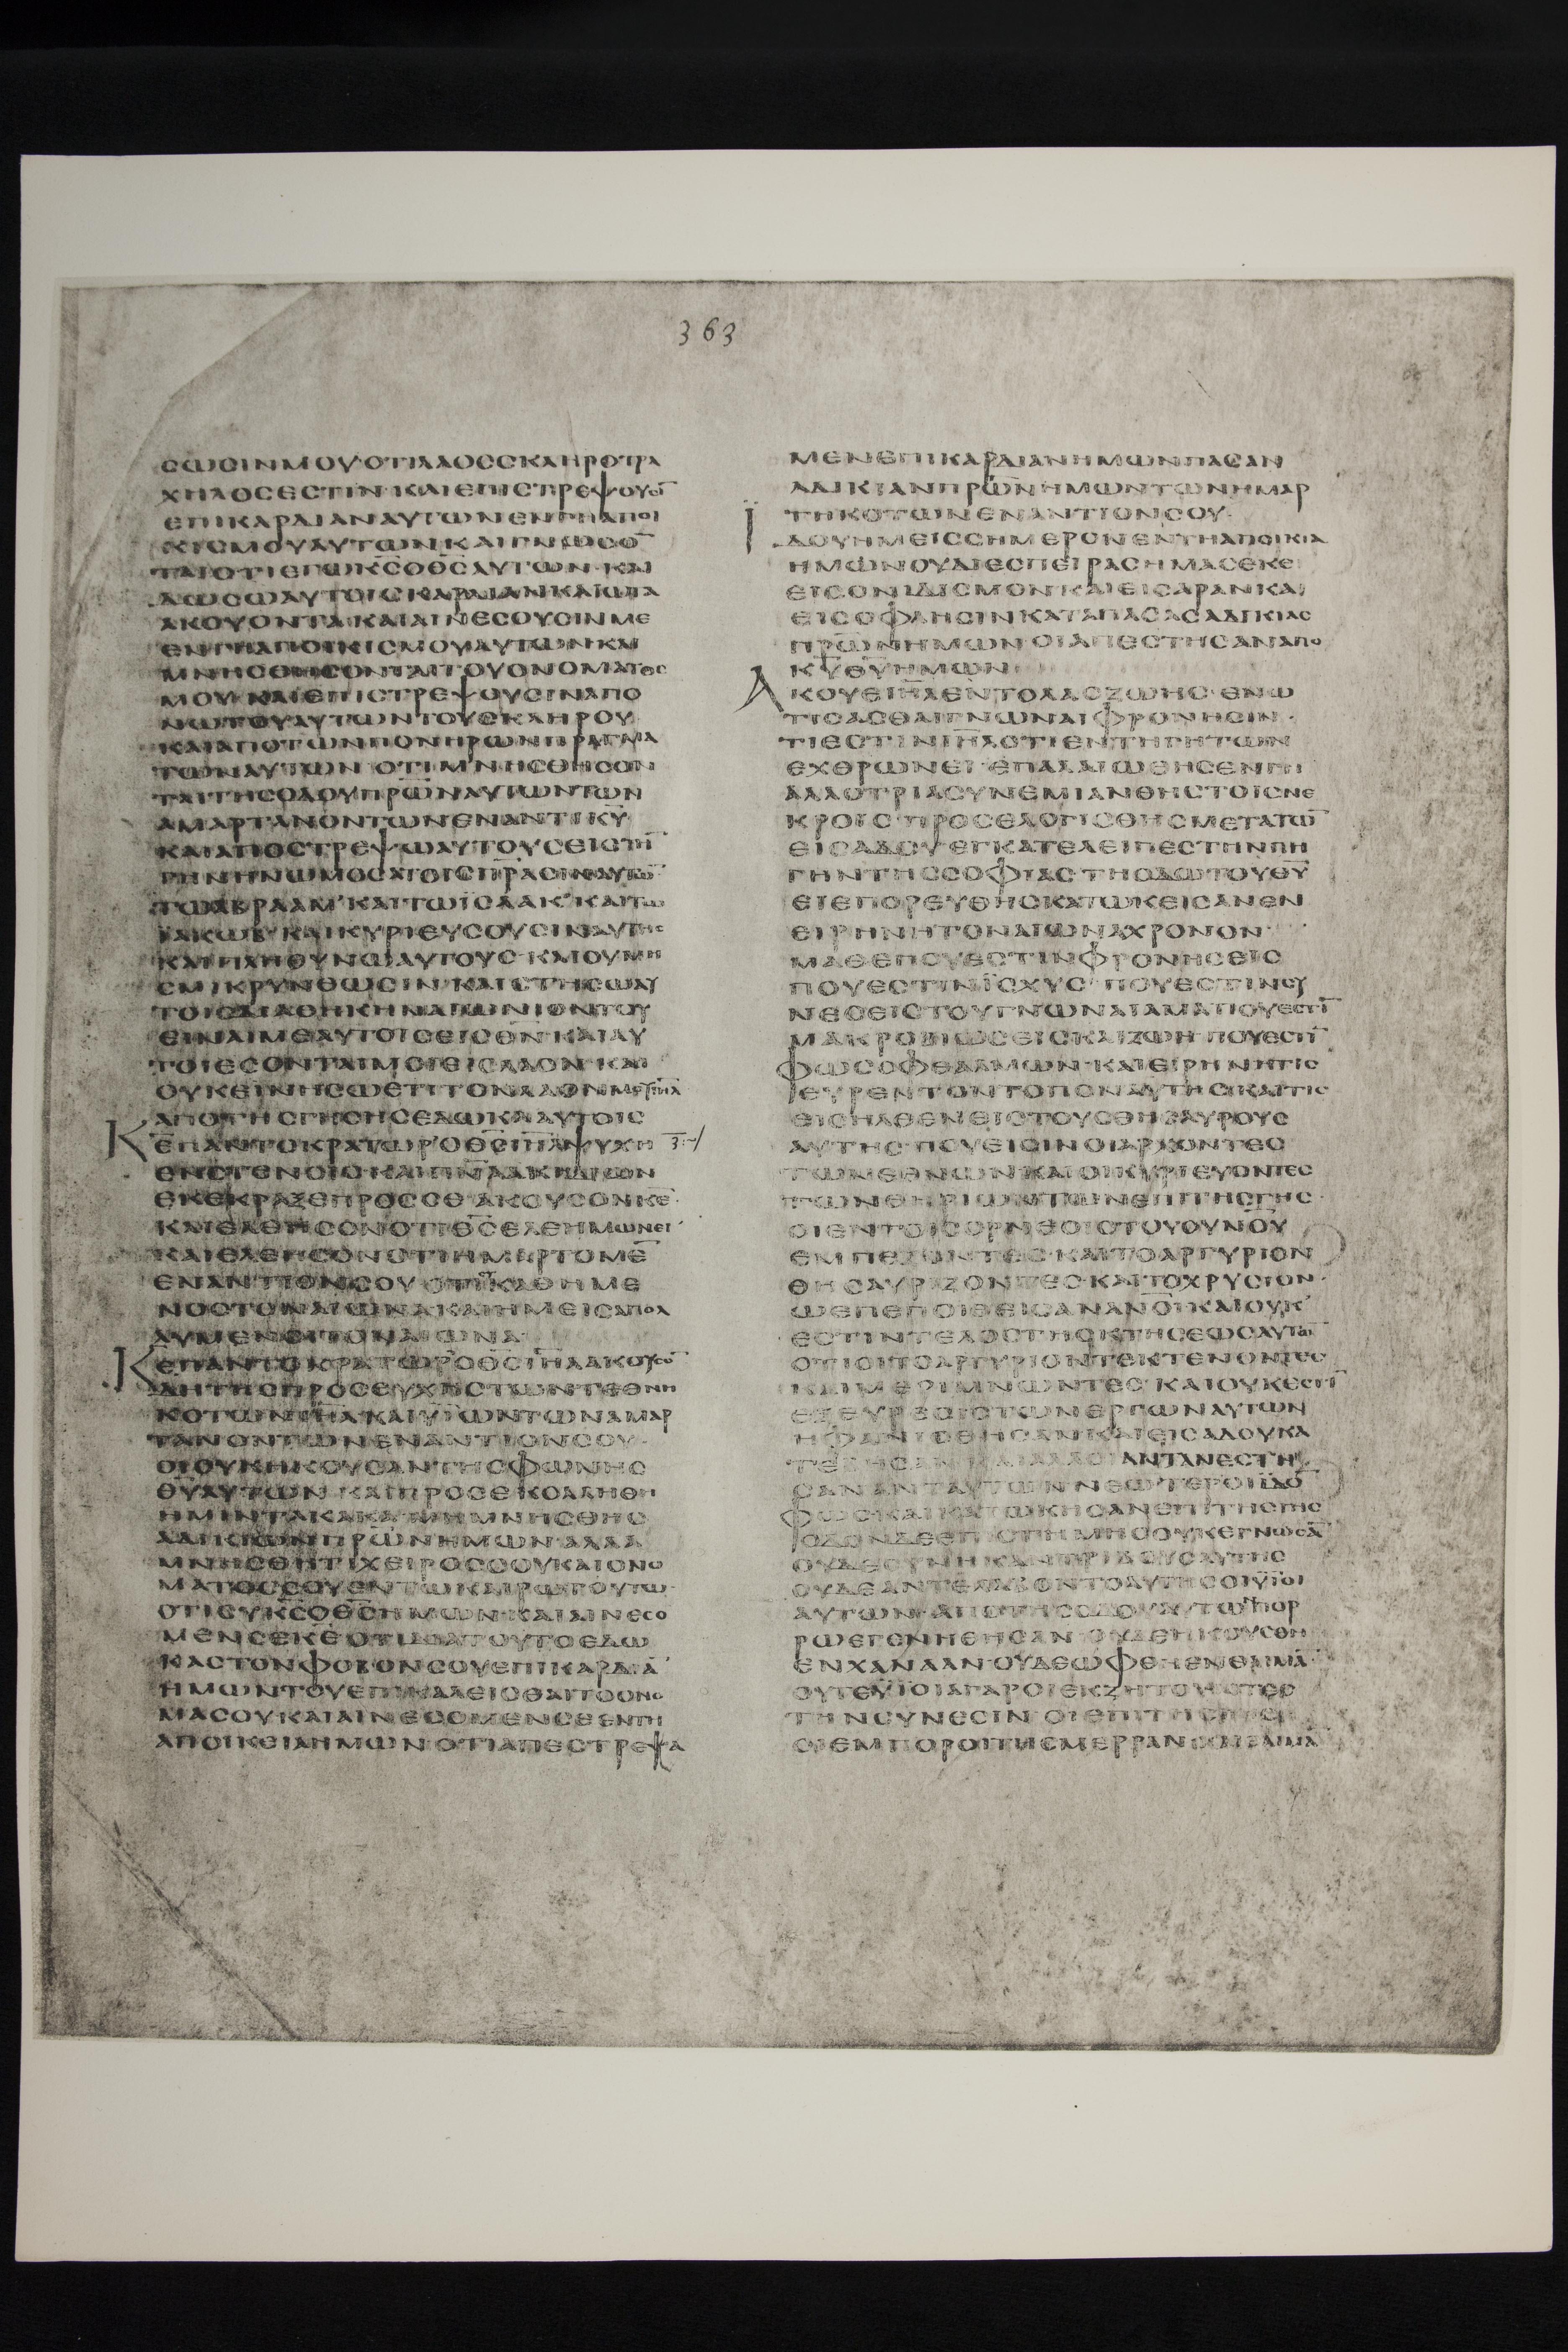 363
ϹωϹΙΝΜΟΥ·ΟΤΙΛΑΟϹϹΚΛΗΡΟΤΡΑ
ΧΗΛΟϹΕϹΤΙΝ·ΚΑΙΕΠΙϹΤΡΕΨΟΥϹΙ̅
ΕΠΙΚΑΡΔΙΑΝΑΥΤωΝΕΝΓΗΑΠΟΙ
ΚΙϹΜΟΥΑΥΤωΝΚΑΙΓΝωϹΟ̅
ΤΑΙΟΤΙΕΓωΚ̅Ϲ̅ΟΘ̅Ϲ̅ΑΥΤωΝ·ΚΑΙ
ΔωϹωΑΥΤΟΙϹΚΑΡΔΙΑΝΚΑΙωΤΑ
ΑΚΟΥΟΝΤΑ·ΚΑΙΑΙΝΕϹΟΥϹΙΝΜΕ
ΕΝΓΗΑΠΟΙΚΙϹΜΟΥΑΥΤωΝΚΑΙ
ΜΝΗϹΘΗϹΟΝΤΑΙΤΟΥΟΝΟΜΑΤΟϹ
ΜΟΥ·ΚΑΙΕΠΙϹΤΡΕΨΟΥϹΙΝΑΠΟ
ΝωΤΟΥΑΥΤωΝΤΟΥϹΚΛΗΡΟΥ
ΚΑΙΑΠΟΤωΝΠΟΝΗΡωΝΠΡΑΓΜΑ
ΤωΝΑΥΤωΝ·ΟΤΙΜΝΗϹΘΗϹΟΝ
ΤΑΙΤΗϹΟΔΟΥΠΡ̅ω̅Ν̅ΑΥΤωΝΤωΝ
ΑΜΑΡΤΑΝΟΝΤωΝΕΝΑΝΤΙΚ̅Υ̅·
ΚΑΙΑΠΟϹΤΡΕΨωΑΥΤΟΥϹΕΙϹΤΗ̅
ΓΗΝΗΝωΜΟϹΑΤΟΙϹΠ̅Ρ̅ΑϹΙΝΑΥΤω̅
ΤωΑΒΡΑΑΜ·ΚΑΙΤωΪϹΑΑΚ·ΚΑΙΤω
ΪΑΚωΒ·ΚΑΙΚΥΡΙΕΥϹΟΥϹΙΝΑΥΤΗϹ
ΚΑΙΠΛΗΘΥΝωΑΥΤΟΥϹ·ΚΑΙΟΥΜΗ
ϹΜΙΚΡΥΝΘωϹΙΝ·ΚΑΙϹΤΗϹωΑΥ
ΤΟΙϹΔΙΑΘΗΚΗΝΑΙωΝΙΟΝΤΟΥ
ΕΙΝΑΙΜΕΑΥΤΟΙϹΕΙϹΘ̅Ν̅·ΚΑΙΑΥ
ΤΟΙΕϹΟΝΤΑΙΜΟΙΕΙϹΛΑΟΝ·ΚΑΙ
ΟΥΚΕΙΝΗϹωΕΤΙΤΟΝΛΑΟΝΜΟΥΤ̅Ο̅Ν̅Ι̅Η̅Λ̅
ΑΠΟΤΗϹΓΗϹΗϹΕΔωΚΑΑΥΤΟΙϹ
Κ̅Ε̅ΠΑΝΤΟΚΡΑΤωΡΟΘ̅Ϲ̅Ι̅Η̅Λ̅ΨΥΧΗ
ΕΝϹΤΕΝΟΙϹΚΑΙΠ̅Ν̅Α̅ΑΚΗΔΙωΝ
ΕΚΕΚΡΑΞΕΠΡΟϹϹΕ·ΑΚΟΥϹΟΝΚ̅Ε̅·
ΚΑΙΕΛΕΗϹΟΝΟΤΙΘ̅Ϲ̅ΕΛΕΗΜωΝΕΙ·
ΚΑΙΕΛΕΗϹΟΝΟΤΙΗΜΑΡΤΟΜΕ̅
ΕΝΑΝΤΙΟΝϹΟΥ·ΟΤΙϹΥΚΑΘΗΜΕ
ΝΟϹΤΟΝΑΙωΝΑΚΑΙΗΜΕΙϹΑΠΟΛ
ΛΥΜΕΝΟΙΤΟΝΑΙωΝΑ
Κ̅Ε̅ΠΑΝΤΟΚΡΑΤωΡΟΘ̅Ϲ̅Ι̅Η̅Λ̅ΑΚΟΥϹΟ̅
ΔΗΤΗϹΠΡΟϹΕΥΧΗϹΤωΝΤΕΘΝΗ
ΚΟΤωΝΙ̅Η̅Λ̅·ΚΑΙΥΪωΝΤωΝΑΜΑΡ
ΤΑΝΟΝΤωΝΕΝΑΝΤΙΟΝϹΟΥ·
ΟΙΟΥΚΗΚΟΥϹΑΝΤΗϹΦωΝΗϹ
Θ̅Υ̅ΑΥΤωΝ·ΚΑΙΠΡΟϹΕΚΟΛΛΗΘΗ
ΗΜΙΝΤΑΚΑΚΑ·ΜΗΜΝΗϹΘΗϹ
ΑΔΙΚΙωΝΠΡ̅ω̅Ν̅ΗΜωΝ·ΑΛΛΑ
ΜΝΗϹΘΗΤΙΧΕΙΡΟϹϹΟΥΚΑΙΟΝΟ
ΜΑΤΟϹϹΟΥΕΝΤωΚΑΙΡωΤΟΥΤω·
ΟΤΙϹΥΚ̅Ϲ̅ΟΘ̅Ϲ̅ΗΜωΝ·ΚΑΙΑΙΝΕϹΟ
ΜΕΝϹΕΚ̅Ε̅ΟΤΙΔΙΑΤΟΥΤΟΕΔω
ΚΑϹΤΟΝΦΟΒΟΝϹΟΥΕΠΙΚΑΡΔΙΑ̅
ΗΜωΝΤΟΥΕΠΙΚΑΛΕΙϹΘΑΙΤΟΟΝΟ
ΜΑϹΟΥΚΑΙΑΙΝΕϹΟΜΕΝϹΕΕΝΤΗ
ΑΠΟΙΚΕΙΑΗΜωΝ·ΟΤΙΑΠΕϹΤΡΕΨΑ
ΜΕΝΕΠΙΚΑΡΔΙΑΝΗΜωΝΠΑϹΑΝ
ΑΔΙΚΙΑΝΠΡ̅ω̅Ν̅ΗΜωΝΤωΝΗΜΑΡ
ΤΗΚΟΤωΝΕΝΑΝΤΙΟΝϹΟΥ·
ΪΔΟΥΗΜΕΙϹϹΗΜΕΡΟΝΕΝΤΗΑΠΟΙΚΙΑ
ΗΜωΝΟΥΔΙΕϹΠΕΙΡΑϹΗΜΑϹΕΚΕΙ
ΕΙϹΟΝΙΔΙϹΜΟΝΚΑΙΕΙϹΑΡΑΝΚΑΙ
ΕΙϹΟΦΛΗϹΙΝΚΑΤΑΠΑϹΑϹΑΔΙΚΙΑϹ
ΠΡ̅ω̅Ν̅ΗΜωΝ·ΟΙΑΠΕϹΤΗϹΑΝΑΠΟ
Κ̅Υ̅Θ̅Υ̅ΗΜωΝ·
ΑΚΟΥΕΙ̅Η̅Λ̅ΕΝΤΟΛΑϹΖωΗϹ·ΕΝω
ΤΙϹΑϹΘΑΙΓΝωΝΑΙΦΡΟΝΗϹΙΝ·
ΤΙΕϹΤΙΝΙ̅Η̅Λ̅ΟΤΙΕΝΤΗΓΗΤωΝ
ΕΧΘΡωΝΕΙ·ΕΠΑΛΑΙωΘΗϹΕΝΓΗ
ΑΛΛΟΤΡΙΑϹΥΝΕΜΙΑΝΘΗϹΤΟΙϹΝΕ
ΚΡΟΙϹ·ΠΡΟϹΕΛΟΓΙϹΘΗϹΜΕΤΑΤω̅
ΕΙϹΑΔΟΥ·ΕΓΚΑΤΕΛΕΙΠΕϹΤΗΝΠΗ
ΓΗΝΤΗϹϹΟΦΙΑϹΤΗΟΔωΤΟΥΘ̅Υ̅
ΕΙΕΠΟΡΕΥΘΗϹΚΑΤωΚΕΙϹΑΝΕΝ
ΕΙΡΗΝΗΤΟΝΑΙωΝΑΧΡΟΝΟΝ·
ΜΑΘΕΠΟΥΕϹΤΙΝΦΡΟΝΗϹΕΙϹ
ΠΟΥΕϹΤΙΝΪϹΧΥϹ·ΠΟΥΕϹΤΙΝϹΥ
ΝΕϹΕΙϹΤΟΥΓΝωΝΑΙΑΜΑΠΟΥΕϹΤΙ̅
ΜΑΚΡΟΒΙωϹΕΙϹΚΑΙΖωΗ·ΠΟΥΕϹΤΙ̅
ΦωϹΟΦΘΑΛΜωΝ·ΚΑΙΕΙΡΗΝΗΤΙϹ
ΕΥΡΕΝΤΟΝΤΟΠΟΝΑΥΤΗϹ·ΚΑΙΤΙϹ
ΕΙϹΗΛΘΕΝΕΙϹΤΟΥϹΘΗϹΑΥΡΟΥϹ
ΑΥΤΗϹ·ΠΟΥΕΙϹΙΝΟΙΑΡΧΟΝΤΕϹ
ΤωΝΕΘΝωΝ·ΚΑΙΟΙΚΥΡΙΕΥΟΝΤΕϹ
ΤωΝΘΗΡΙωΝΤωΝΕΠΙΤΗϹΓΗϹ·
ΟΙΕΝΤΟΙϹΟΡΝΕΟΙϹΤΟΥΟΥΝΟΥ
ΕΜΠΕΖΟΝΤΕϹ·ΚΑΙΤΟΑΡΓΥΡΙΟΝ
ΘΗϹΑΥΡΙΖΟΝΤΕϹ·ΚΑΙΤΟΧΡΥϹΙΟΝ·
ωΕΠΕΠΟΙΘΕΙϹΑΝΑΝ̅Ο̅Ι̅·ΚΑΙΟΥΚ
ΕϹΤΙΝΤΕΛΟϹΤΗϹΚΤΗϹΕωϹΑΥΤω̅
ΟΤΙΟΙΤΟΑΡΓΥΡΙΟΝΤΕΚΤΕΝΟΝΤΕϹ
ΚΑΙΜΕΡΙΜΝωΝΤΕϹ·ΚΑΙΟΥΚΕϹΤΙ̅
ΕΞΕΥΡΕϹΙϹΤωΝΕΡΓωΝΑΥΤωΝ
ΗΦΑΝΙϹΘΗϹΑΝΚΑΙΕΙϹΑΔΟΥΚΑ
ΤΕΒΗϹΑΝ·ΚΑΙΑΛΛΟΙΑΝΤΑΝΕϹΤΗ
ϹΑΝΑΝΤΑΥΤωΝΝΕωΤΕΡΟΙΪΔΟ̅
ΦωϹ·ΚΑΙΚΑΤωΚΗϹΑΝΕΠΙΤΗϹΓΗϹ
ΟΔΟΝΔΕΕΠΙϹΤΗΜΗϹΟΥΚΕΓΝωϹΑ̅
ΟΥΔΕϹΥΝΗΚΑΝΤΡΙΒΟΥϹΑΥΤΗϹ
ΟΥΔΕΑΝΤΕΛΑΒΟΝΤΟΑΥΤΗϹΟΙΥΪΟΙ
ΑΥΤωΝ·ΑΠΟΤΗϹΟΔΟΥΑΥΤωΝΠΟΡ
ΡωΕΓΕΝΗΘΗϹΑΝ·ΟΥΔΕΗΚΟΥϹΘΗ
ΕΝΧΑΝΑΑΝ·ΟΥΔΕωΦΘΗΕΝΘΑΙΜΑ̅·
ΟΥΤΕΥΪΟΙΑΓΑΡΟΙΕΚΖΗΤΟΥΝΤΕϹ
ΤΗΝϹΥΝΕϹΙΝ·ΟΙΕΠΙΤΗϹΓΗϹ
ΟΙΕΜΠΟΡΟΙΤΗϹΜΕΡΡΑΝ